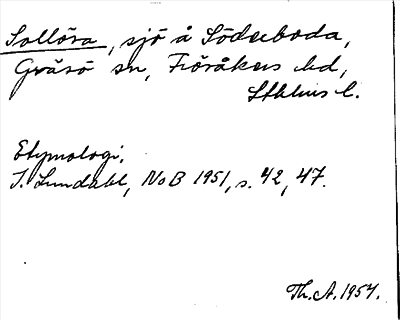 Sollöra, sjö å Söderboda,
Gräsö sn, Frösåkers hd,
Sthlms l.
Etymologi.
I. Lundahl, NoB 1951, s. 42, 47.
Th. A. 1957.